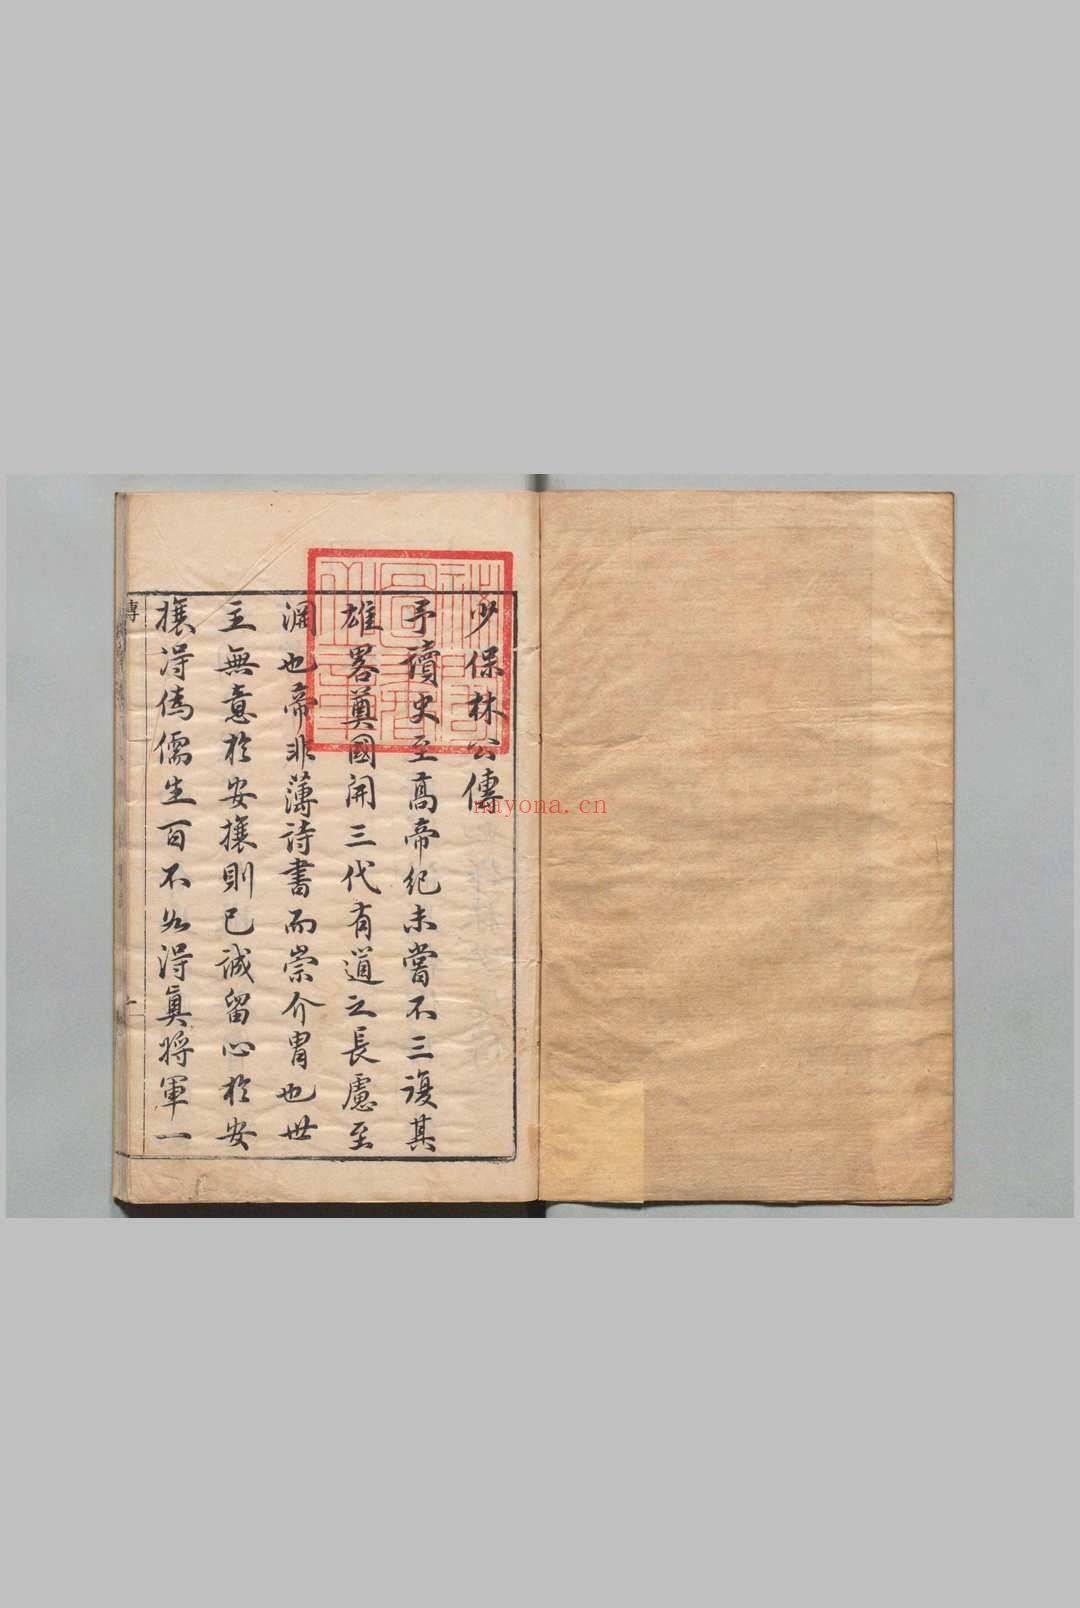 少保林公傳
予讀史至高帝紀未嘗不三復其
雄畧奠國開三代有道之長慮至
淵也帝非薄詩書而崇介冑也世
主無意於安攘則已誠留心於安
攘得儁儒生百不如得眞將軍一
傳
一
nayona.cn